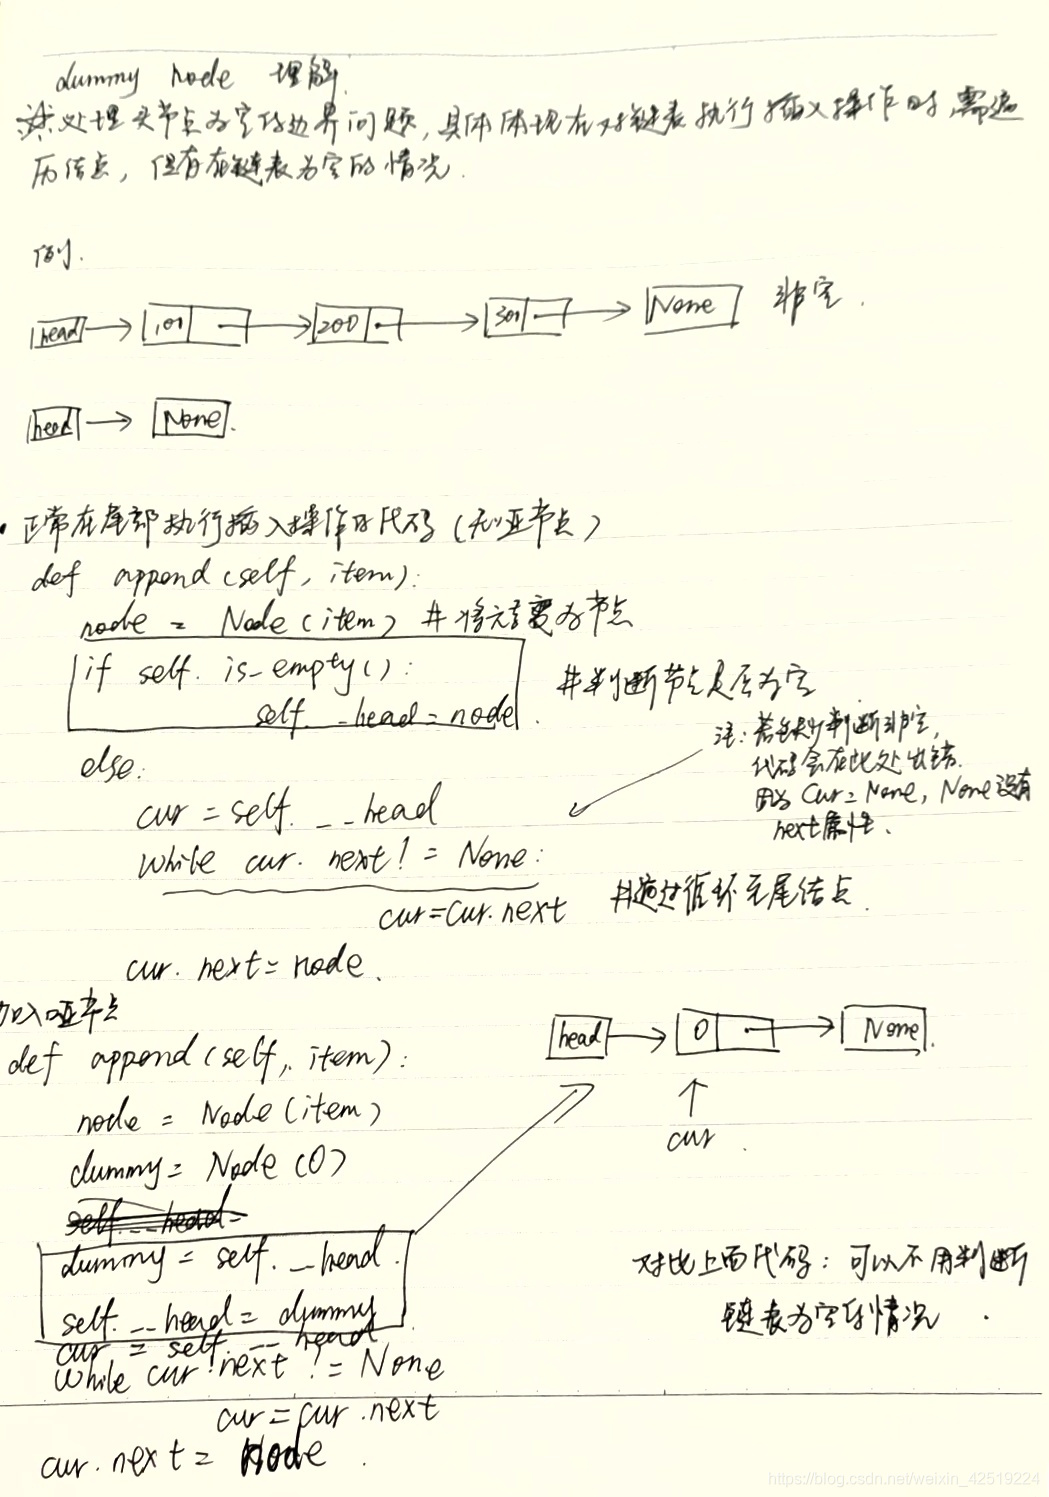 dummy node 理解.
处理头节点为空的边界问题,具体体现在对链表执行插入操作时,需遍
历结点,但存在链表为空的情况.
例.
head 100 200 300 None 非空.
head None.
·正常在尾部执行插入操作的代码(无哑节点)
def append(self, item):
node = Node(item) #将元素变为节点
if self. is_empty():
#判断节点是否为空
self. __head = node.
注:若缺少判断非空,
代码会在此处出错.
else:
因为 Cur = None, None没有
next属性.
cur = self. __head
while cur. next! = None:
cur=cur.next #通过循环至尾结点
cur. next = node.
加入哑节点
head 0 None.
def append(self, item):
cur.
node = Node(item)
dummy= Node (0)
self. __head=
dummy = self. __head.
对比上面代码:可以不用判断
链表为空的情况.
self. __head= dummy
cur = self. __head
while cur.next != None
cur = cur.next
cur. next = Node.
https://blog.csdn.net/weixin_42519224